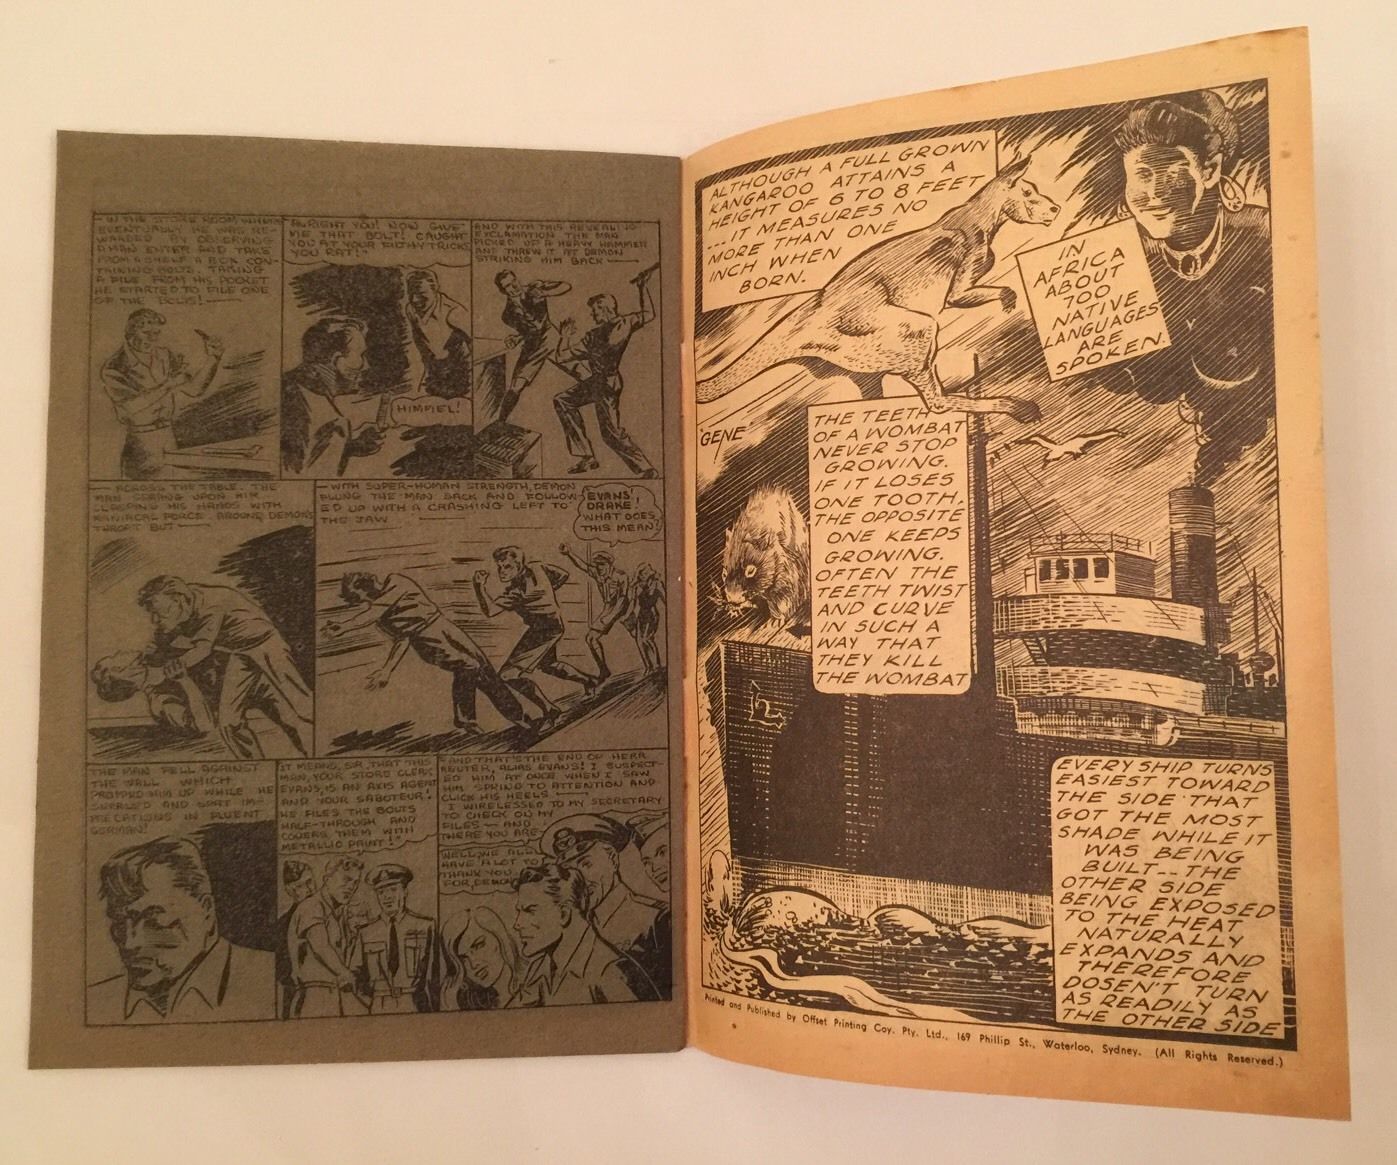 —IN THE STORE ROOM WHERE
EVENTUALLY HE WAS RE-
WARDED BY OBSERVING
A MAN ENTER AND TAKE
FROM A SHELF A BOX CON-
TAINING BOLTS. TAKING
A FILE FROM HIS POCKET
HE STARTED TO FILE ONE
OF THE BOLTS!
"ALRIGHT YOU! NOW GIVE
ME THAT BOLT! CAUGHT
YOU AT YOUR FILTHY TRICKS
YOU RAT!"
HIMMEL!
AND WITH THIS REVEALING
EXCLAMATION THE MAN
PICKED UP A HEAVY HAMMER
AND THREW IT AT DEMON
STRIKING HIM BACK —
— ACROSS THE TABLE. THE
MAN SPRANG UPON HIM
CLASPING HIS HANDS WITH
MANIACAL FORCE AROUND DEMON'S
THROAT BUT —
—WITH SUPER-HUMAN STRENGTH, DEMON
FLUNG THE MAN BACK AND FOLLOW-
ED UP WITH A CRASHING LEFT TO
THE JAW
EVANS!
DRAKE!
WHAT DOES
THIS MEAN?
THE MAN FELL AGAINST
THE WALL WHICH
PROPPED HIM UP WHILE HE
SNARLED AND SPAT IM-
PRECATIONS IN FLUENT
GERMAN!
IT MEANS, SIR, THAT THIS
MAN, YOUR STORE CLERK
EVANS, IS AN AXIS AGENT
AND YOUR SABOTEUR!
HE FILES THE BOLTS
HALF-THROUGH AND
COVERS THEM WITH
METALLIC PAINT!"
"AND THAT'S THE END OF HERR
REUTER, ALIAS EVANS! I SUSPECT-
ED HIM AT ONCE WHEN I SAW
HIM SPRING TO ATTENTION AND
CLICK HIS HEELS —
I WIRELESSED TO MY SECRETARY
TO CHECK ON MY
FILES — AND
THERE YOU ARE
WELL, WE ALL
HAVE A LOT TO
THANK YOU
FOR, DEMON
ALTHOUGH A FULL GROWN
KANGAROO ATTAINS A
HEIGHT OF 6 TO 8 FEET
... IT MEASURES NO
MORE THAN ONE
INCH WHEN
BORN.
IN
AFRICA
ABOUT
700
NATIVE
LANGUAGES
ARE
SPOKEN.
'GENE'
THE TEETH
OF A WOMBAT
NEVER STOP
GROWING.
IF IT LOSES
ONE TOOTH,
THE OPPOSITE
ONE KEEPS
GROWING.
OFTEN THE
TEETH TWIST
AND CURVE
IN SUCH A
WAY THAT
THEY KILL
THE WOMBAT
EVERY SHIP TURNS
EASIEST TOWARD
THE SIDE THAT
GOT THE MOST
SHADE WHILE IT
WAS BEING
BUILT -- THE
OTHER SIDE
BEING EXPOSED
TO THE HEAT
NATURALLY
EXPANDS AND
THEREFORE
DOSEN'T TURN
AS READILY AS
THE OTHER SIDE
Printed and Published by Offset Printing Coy. Pty. Ltd., 169 Phillip St., Waterloo, Sydney. (All Rights Reserved.)